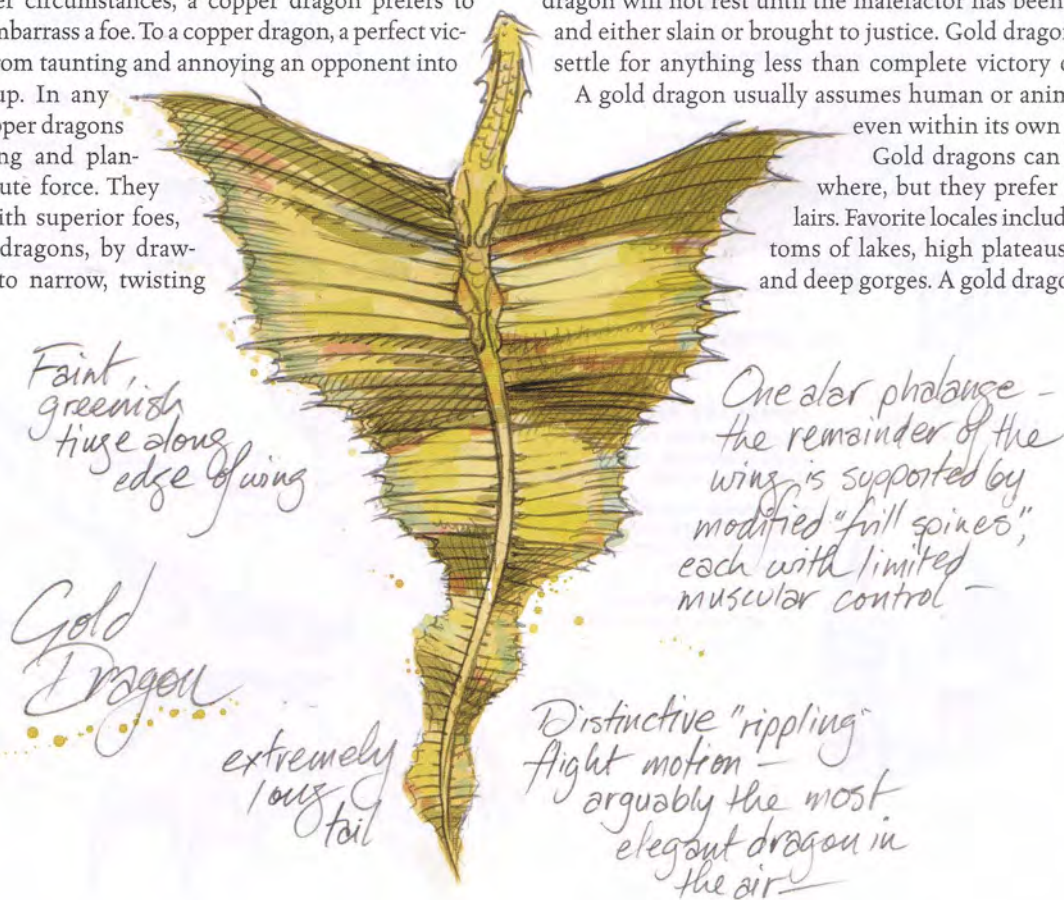 er circumstances, a copper dragon prefers to
mbarrass a foe. To a copper dragon, a perfect vic-
rom taunting and annoying an opponent into
up. In any
pper dragons
ng and plan-
ute force. They
ith superior foes,
dragons, by draw-
to narrow, twisting
dragon will not rest until the malefactor has been
and either slain or brought to justice. Gold dragon
settle for anything less than complete victory
A gold dragon usually assumes human or anim
even within its own
Gold dragons can
where, but they prefer
lairs. Favorite locales includ
toms of lakes, high plateaus
and deep gorges. A gold drago
Faint,
greenish
tinge along
edge of wing
One alar phalange -
the remainder of the
wing is supported by
modified "frill spines",
each with limited
muscular control -
Gold
Dragon
extremely
long
tail
Distinctive "rippling"
flight motion -
arguably the most
elegant dragon in
the air -